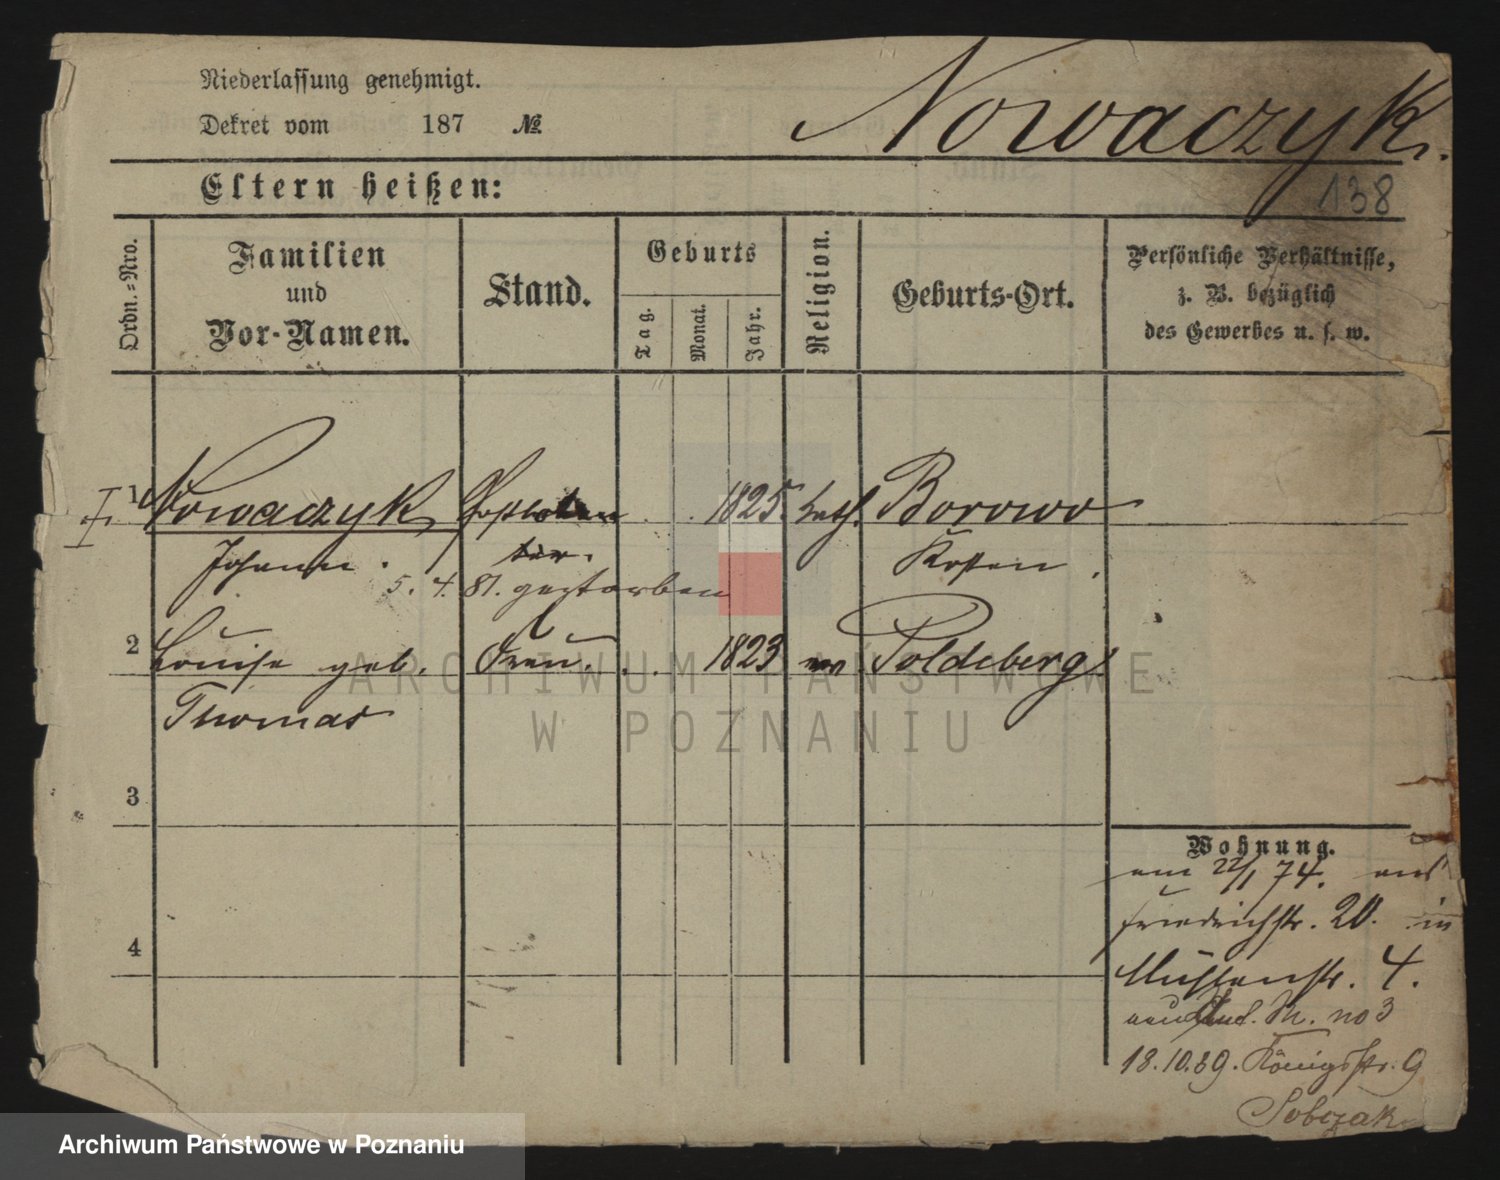 Niederlassung genehmigt.
Dekret vom 187 №
Nowaczyk.
Eltern heißen:
138
Ordn.=Nro.
Familien
und
Vor-Namen.
Stand.
Geburts
Tag.
Monat.
Jahr.
Religion.
Geburts-Ort.
Persönliche Verhältnisse,
z. B. bezüglich
des Gewerbes u. s. w.
1 Nowaczyk 1825. kath. Borowo
Johann. Kosten.
5. 4. 81. gestorben
2 Louise geb. Frau. 1823 ev Poldeberg
Thomas
ARCHIWUM PAŃSTWOWE
W POZNANIU
3
4
Wohnung.
am 22/1 74. aus
Friedrichstr. 20. in
Mühlenstr. 4.
no 3
18.10.89. Königsstr. 9
Sobczak
Archiwum Państwowe w Poznaniu